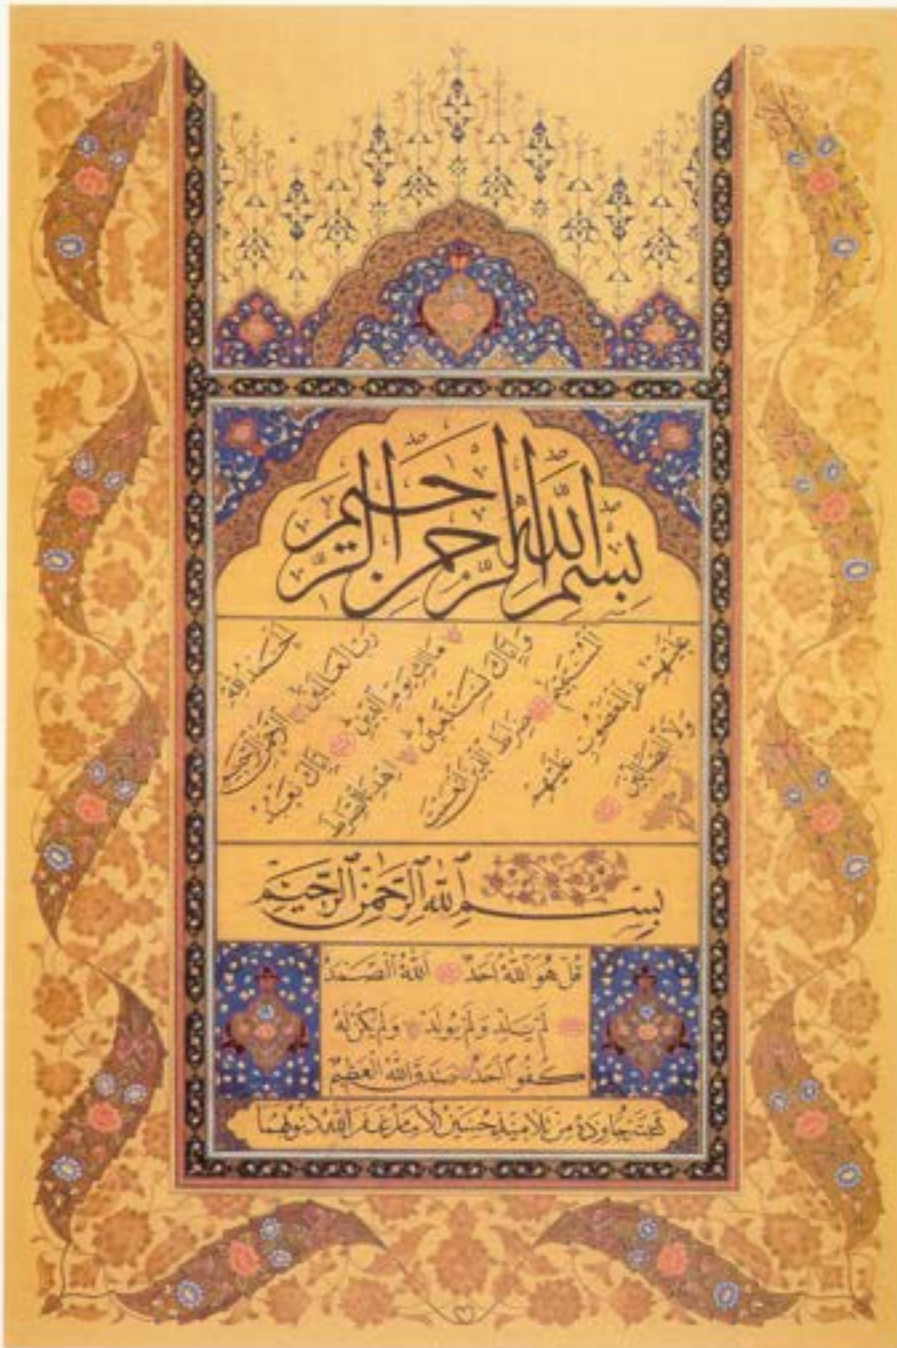 بِسْمِ اللهِ الرَّحْمٰنِ الرَّحِيمِ
اَلْحَمْدُ لِلّٰهِ
رَبِّ الْعَالَمِينَ الرَّحْمٰنِ الرَّحِيمِ
مَالِكِ يَوْمِ الدِّينِ اِيَّاكَ نَعْبُدُ
وَاِيَّاكَ نَسْتَعِينُ اِهْدِنَا الصِّرَاطَ
الْمُسْتَقِيمَ صِرَاطَ الَّذِينَ اَنْعَمْتَ
عَلَيْهِمْ غَيْرِ الْمَغْضُوبِ عَلَيْهِمْ
وَلَا الضَّالِّينَ
بِسْمِ اللهِ الرَّحْمٰنِ الرَّحِيمِ
قُلْ هُوَ اللهُ اَحَدٌ اَللهُ الصَّمَدُ
لَمْ يَلِدْ وَلَمْ يُولَدْ وَلَمْ يَكُنْ لَهُ
كُفُوًا اَحَدٌ صَدَقَ اللهُ الْعَظِيمُ
مِنْ تَلَامِيذِ حُسَيْنِ غَفَرَ اللهُ ذُنُوبَهُمَا